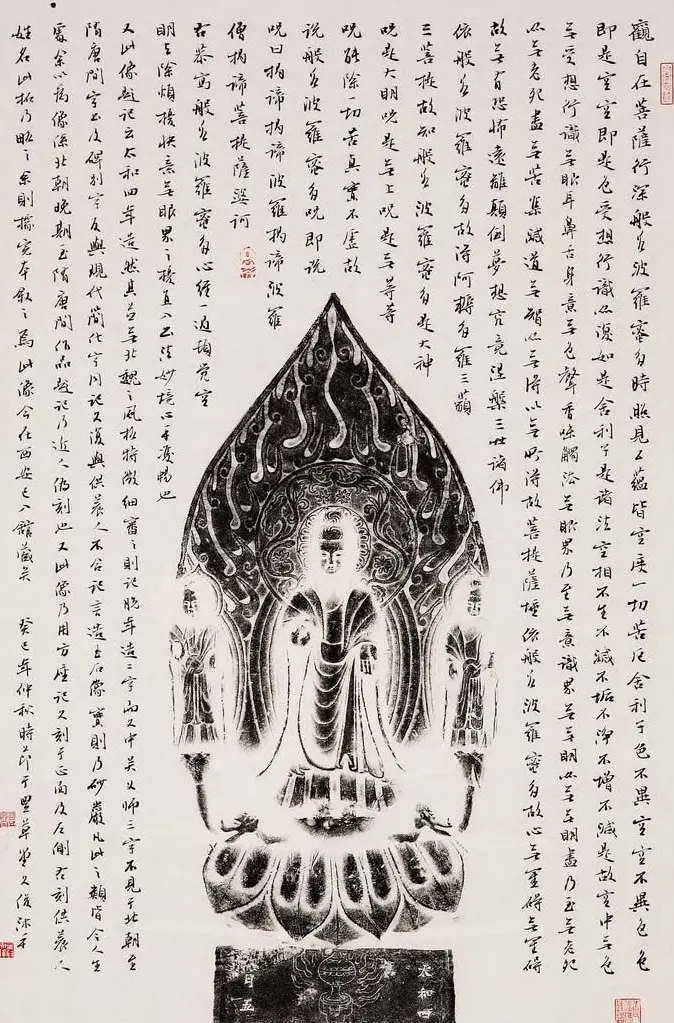 觀自在菩薩行深般若波羅蜜多時照見五蘊皆空度一切苦厄舍利子色不異空空不異色色
即是空空即是色受想行識亦復如是舍利子是諸法空相不生不滅不垢不淨不增不減是故空中無色
無受想行識無眼耳鼻舌身意無色聲香味觸法無眼界乃至無意識界無無明亦無無明盡乃至無老死
亦無老死盡無苦集滅道無智亦無得以無所得故菩提薩埵依般若波羅蜜多故心無罣礙無罣礙
故無有恐怖遠離顛倒夢想究竟涅槃三世諸佛
依般若波羅蜜多故得阿耨多羅三藐
三菩提故知般若波羅蜜多是大神
咒是大明咒是無上咒是無等等
咒能除一切苦真實不虛故
說般若波羅蜜多咒即說
咒曰揭諦揭諦波羅揭諦波羅
僧揭諦菩提薩婆訶
右恭寫般若波羅蜜多心經一過頓覺空
明真除煩擾快意無眼界之擾直入正法妙境心手暢也
又此像題記云太和四年造然其像無北魏之風格特徵細審之則記脫年造二字而又中吳父師三字不見于北朝至
隋唐間字及碑別字反與現代簡化字同記又復與供養人不合記言造玉石像實則乃砂巖凡此之類皆令人生
疑余以為像係北朝晚期至隋唐間作品題記乃近人偽刻也又此像乃用方座記又刻于正面及左側右刻供養人
姓名此拓乃略之余則據完本之為此像今在西安已入館藏矣 癸巳年仲秋時節于草堂文俊沐手
太和四
月五